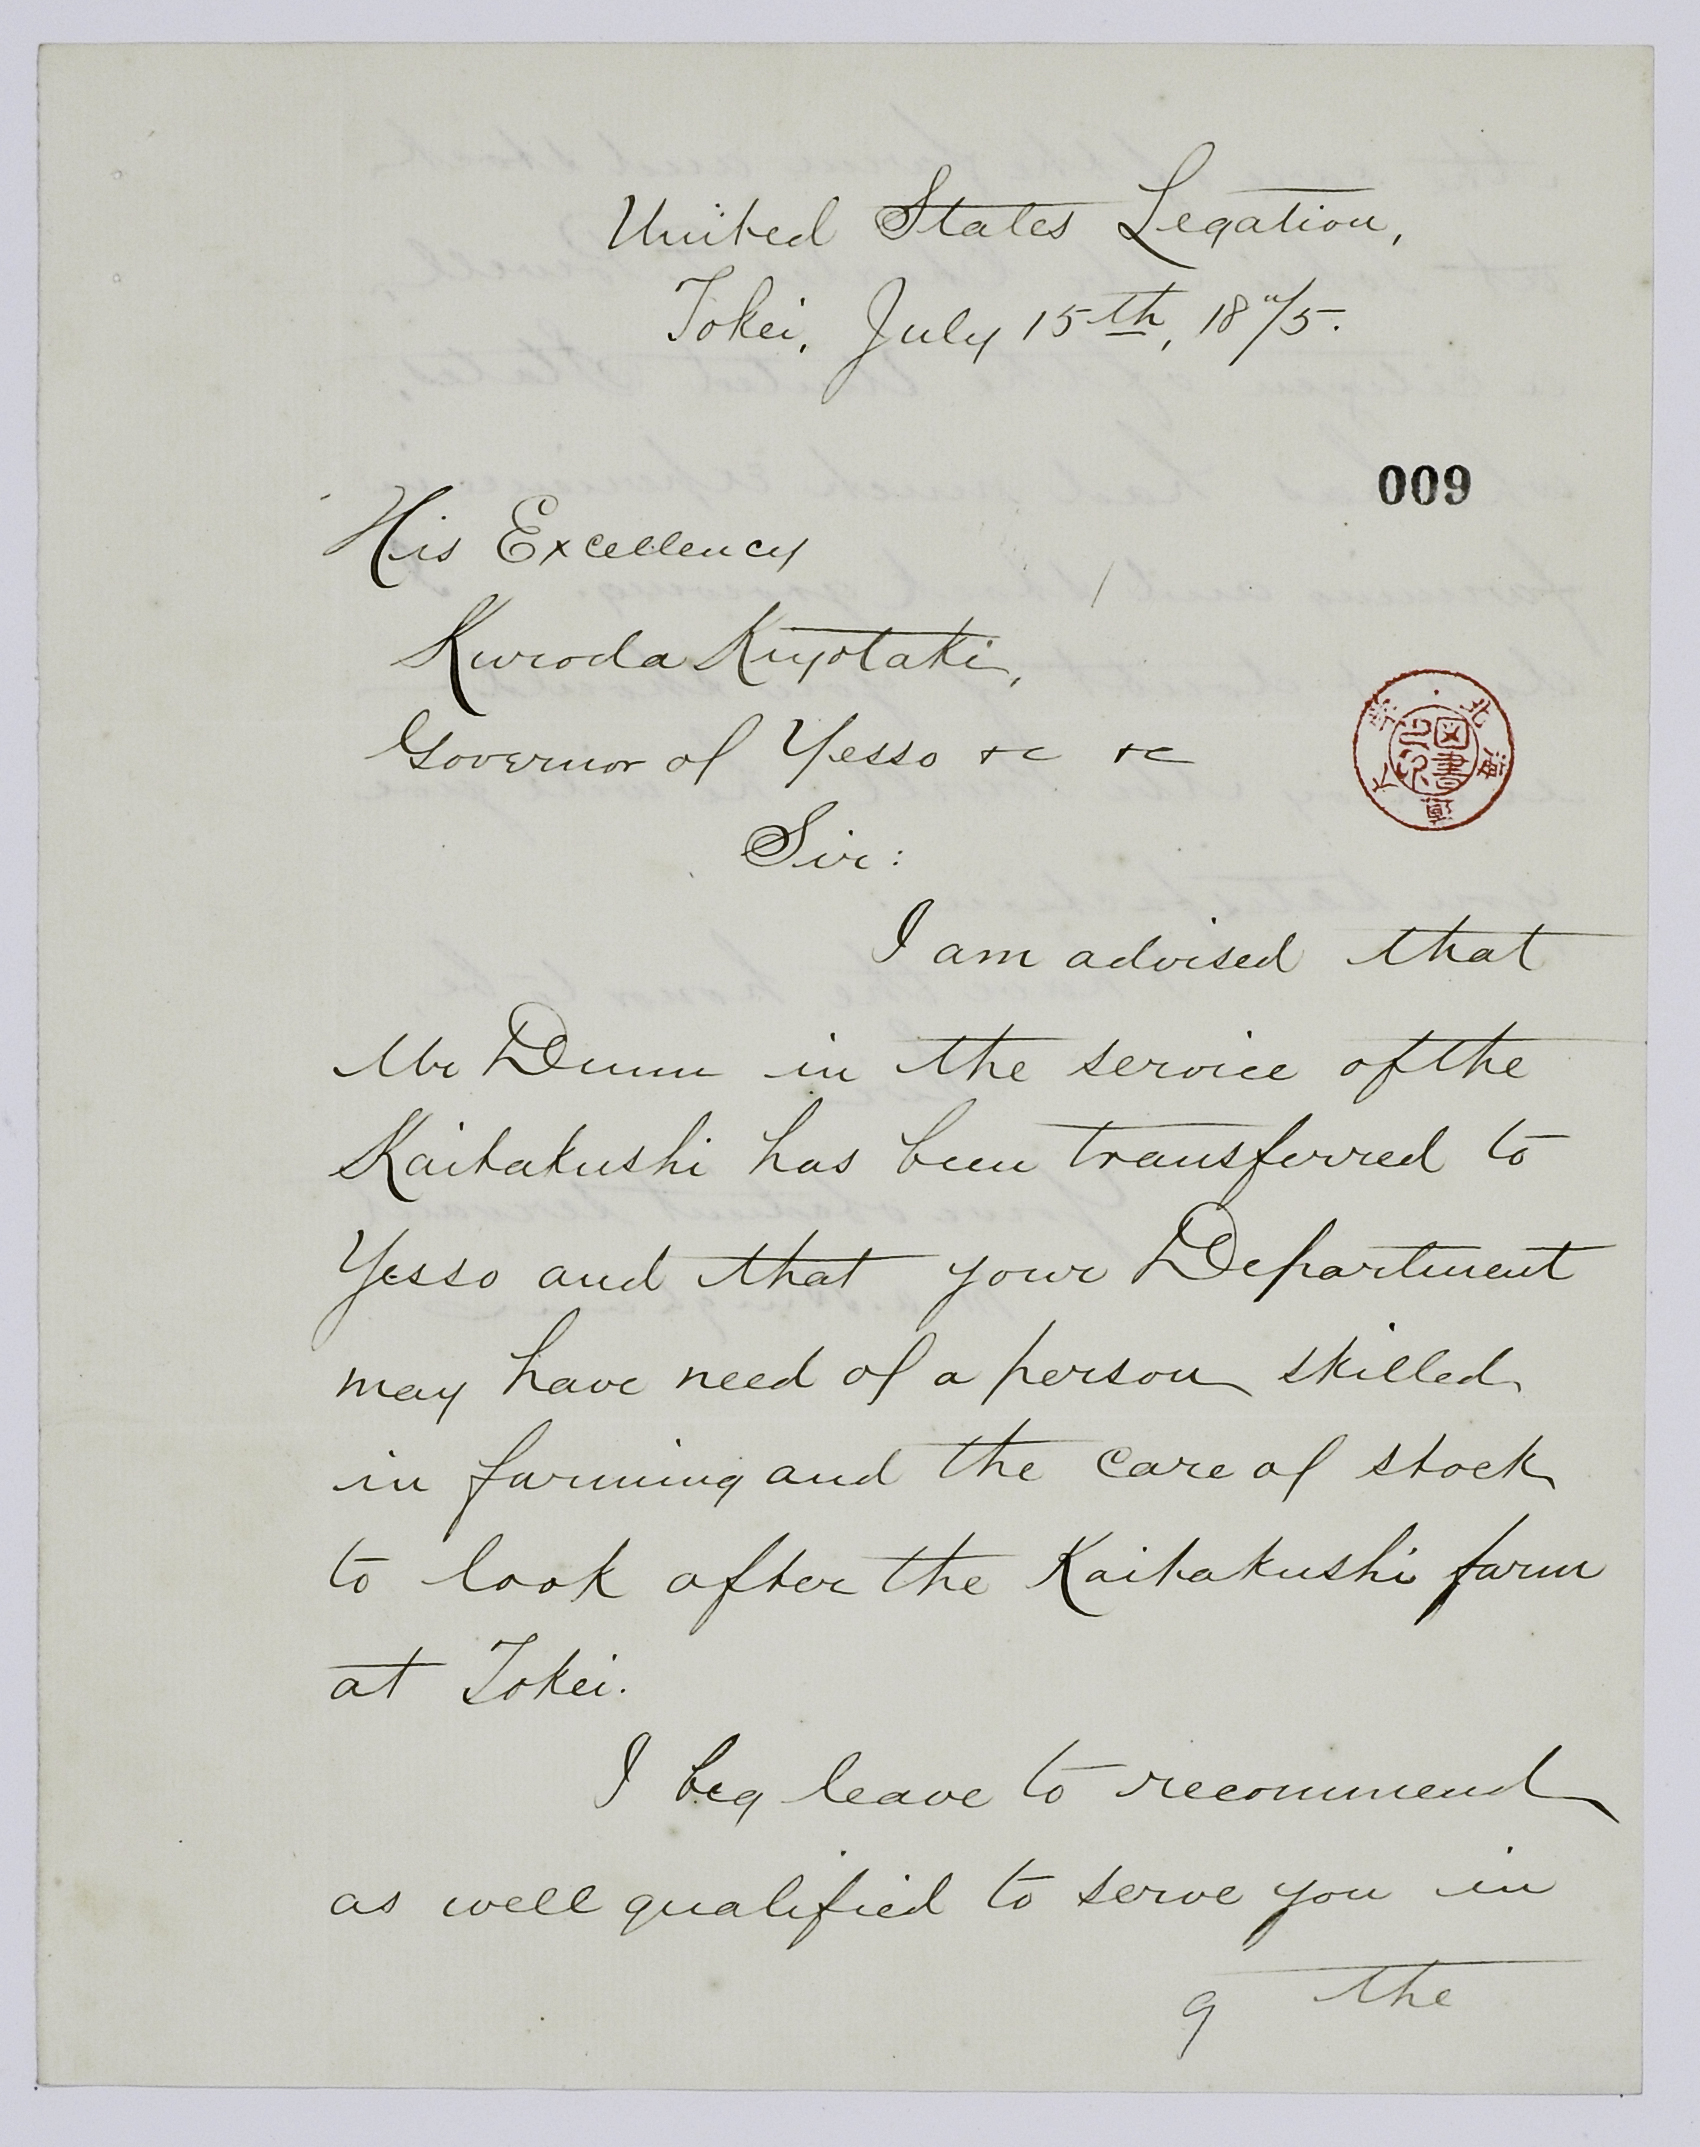 United States Legation,
Tokei, July 15th, 18"/5.
009
His Excellency
Kuroda Kiyotaki,
Governor of Yesso &c &c
北海道大学
図書之印
Sir:
I am advised that
Mr Dunn in the service of the
Kaitakushi has been transferred to
Yesso and that your Department
may have need of a person skilled
in farming and the care of stock
to look after the Kaitakushi farm
at Tokei.
I beg leave to recommend
as well qualified to serve you in
9 the